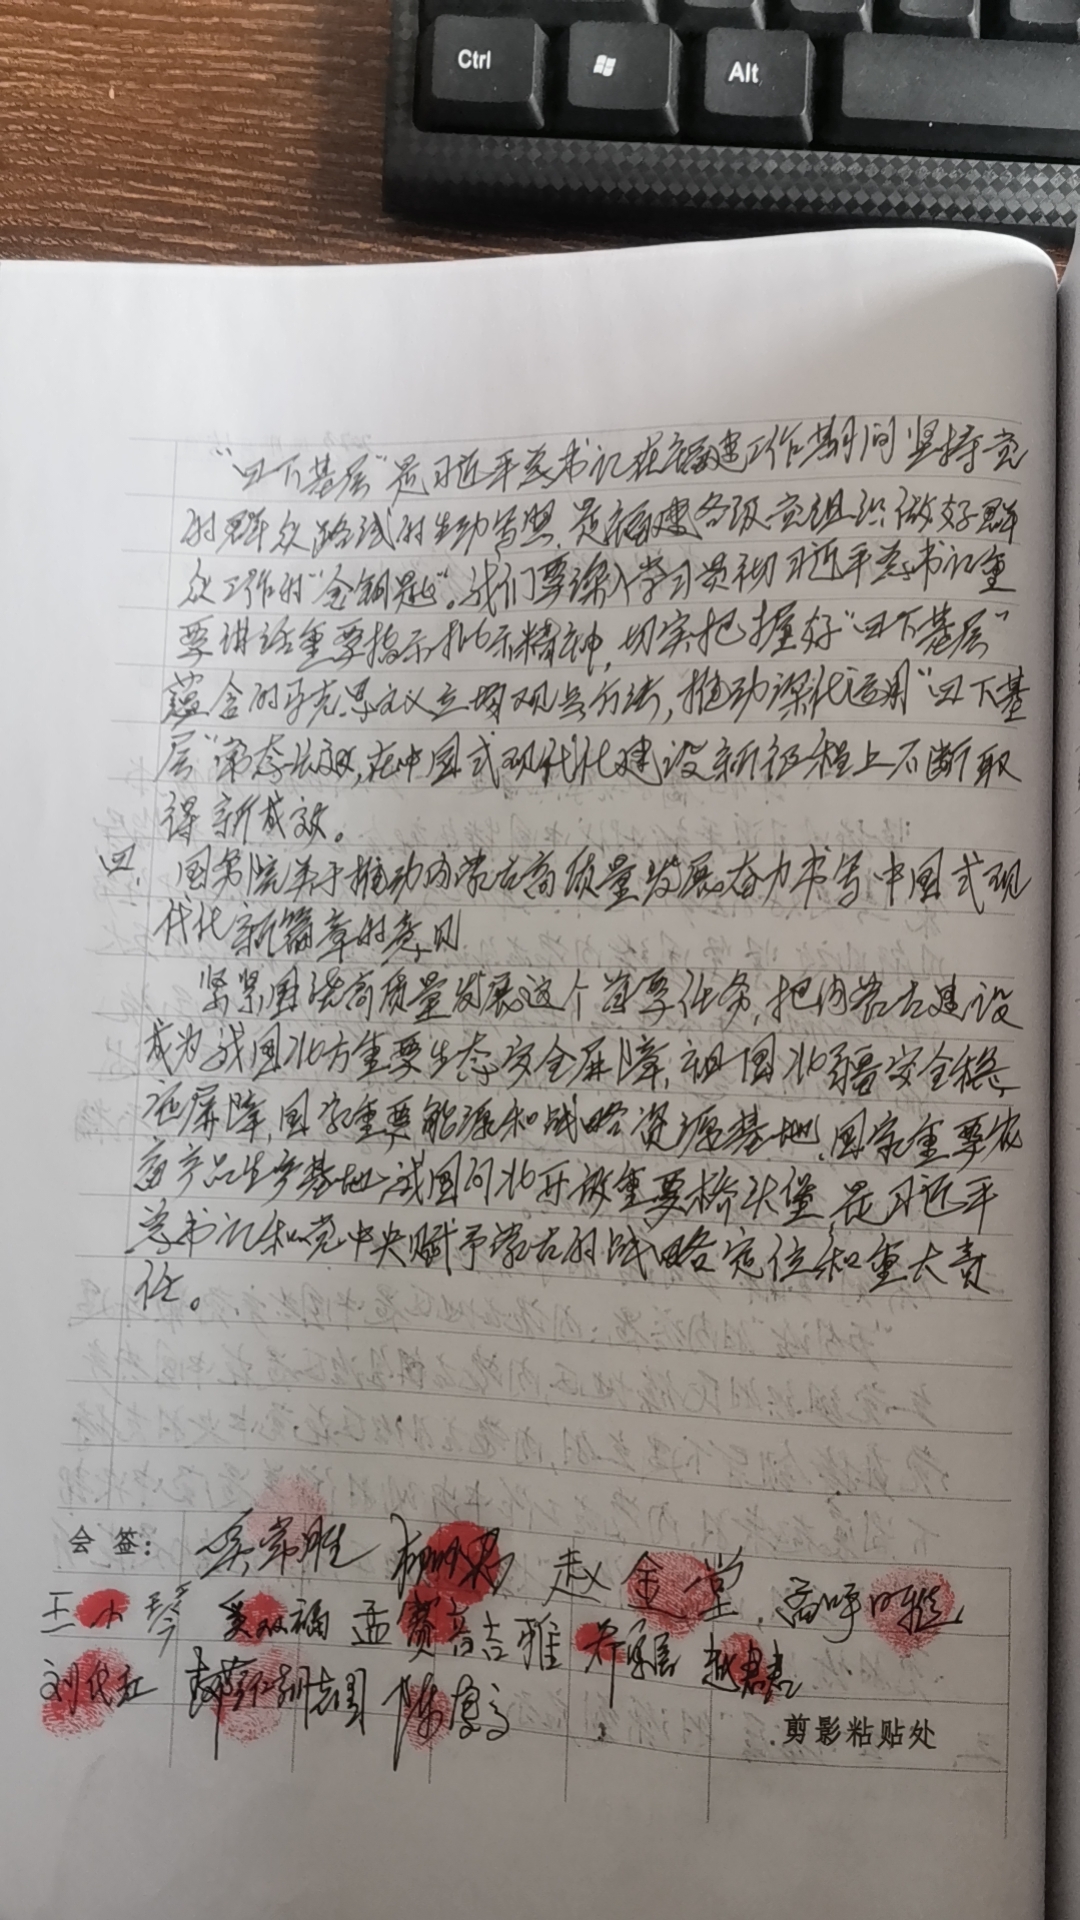 Ctrl
Alt
"四下基层"是习近平总书记在福建工作期间坚持党
的群众路线的生动写照,是福建各级党组织做好群
众工作的"金钥匙"。我们要深入学习贯彻习近平总书记重
要讲话重要指示批示精神,切实把握好"四下基层"
蕴含的马克思主义立场观点方法,推动深化运用"四下基
层"常态长效,在中国式现代化建设新征程上不断取
得新成效。
四、国务院关于推动内蒙古高质量发展奋力书写中国式现
代化新篇章的意见
紧紧围绕高质量发展这个首要任务,把内蒙古建设
成为我国北方重要生态安全屏障,祖国北疆安全稳
定屏障,国家重要能源和战略资源基地,国家重要农
畜产品生产基地,我国向北开放重要桥头堡,是习近平
总书记和党中央赋予蒙古的战略定位和重大责
任。
会签: 吴常胜 赵金堂
王小琴 吴双福 孟赛音吉雅
刘代红
剪影粘贴处